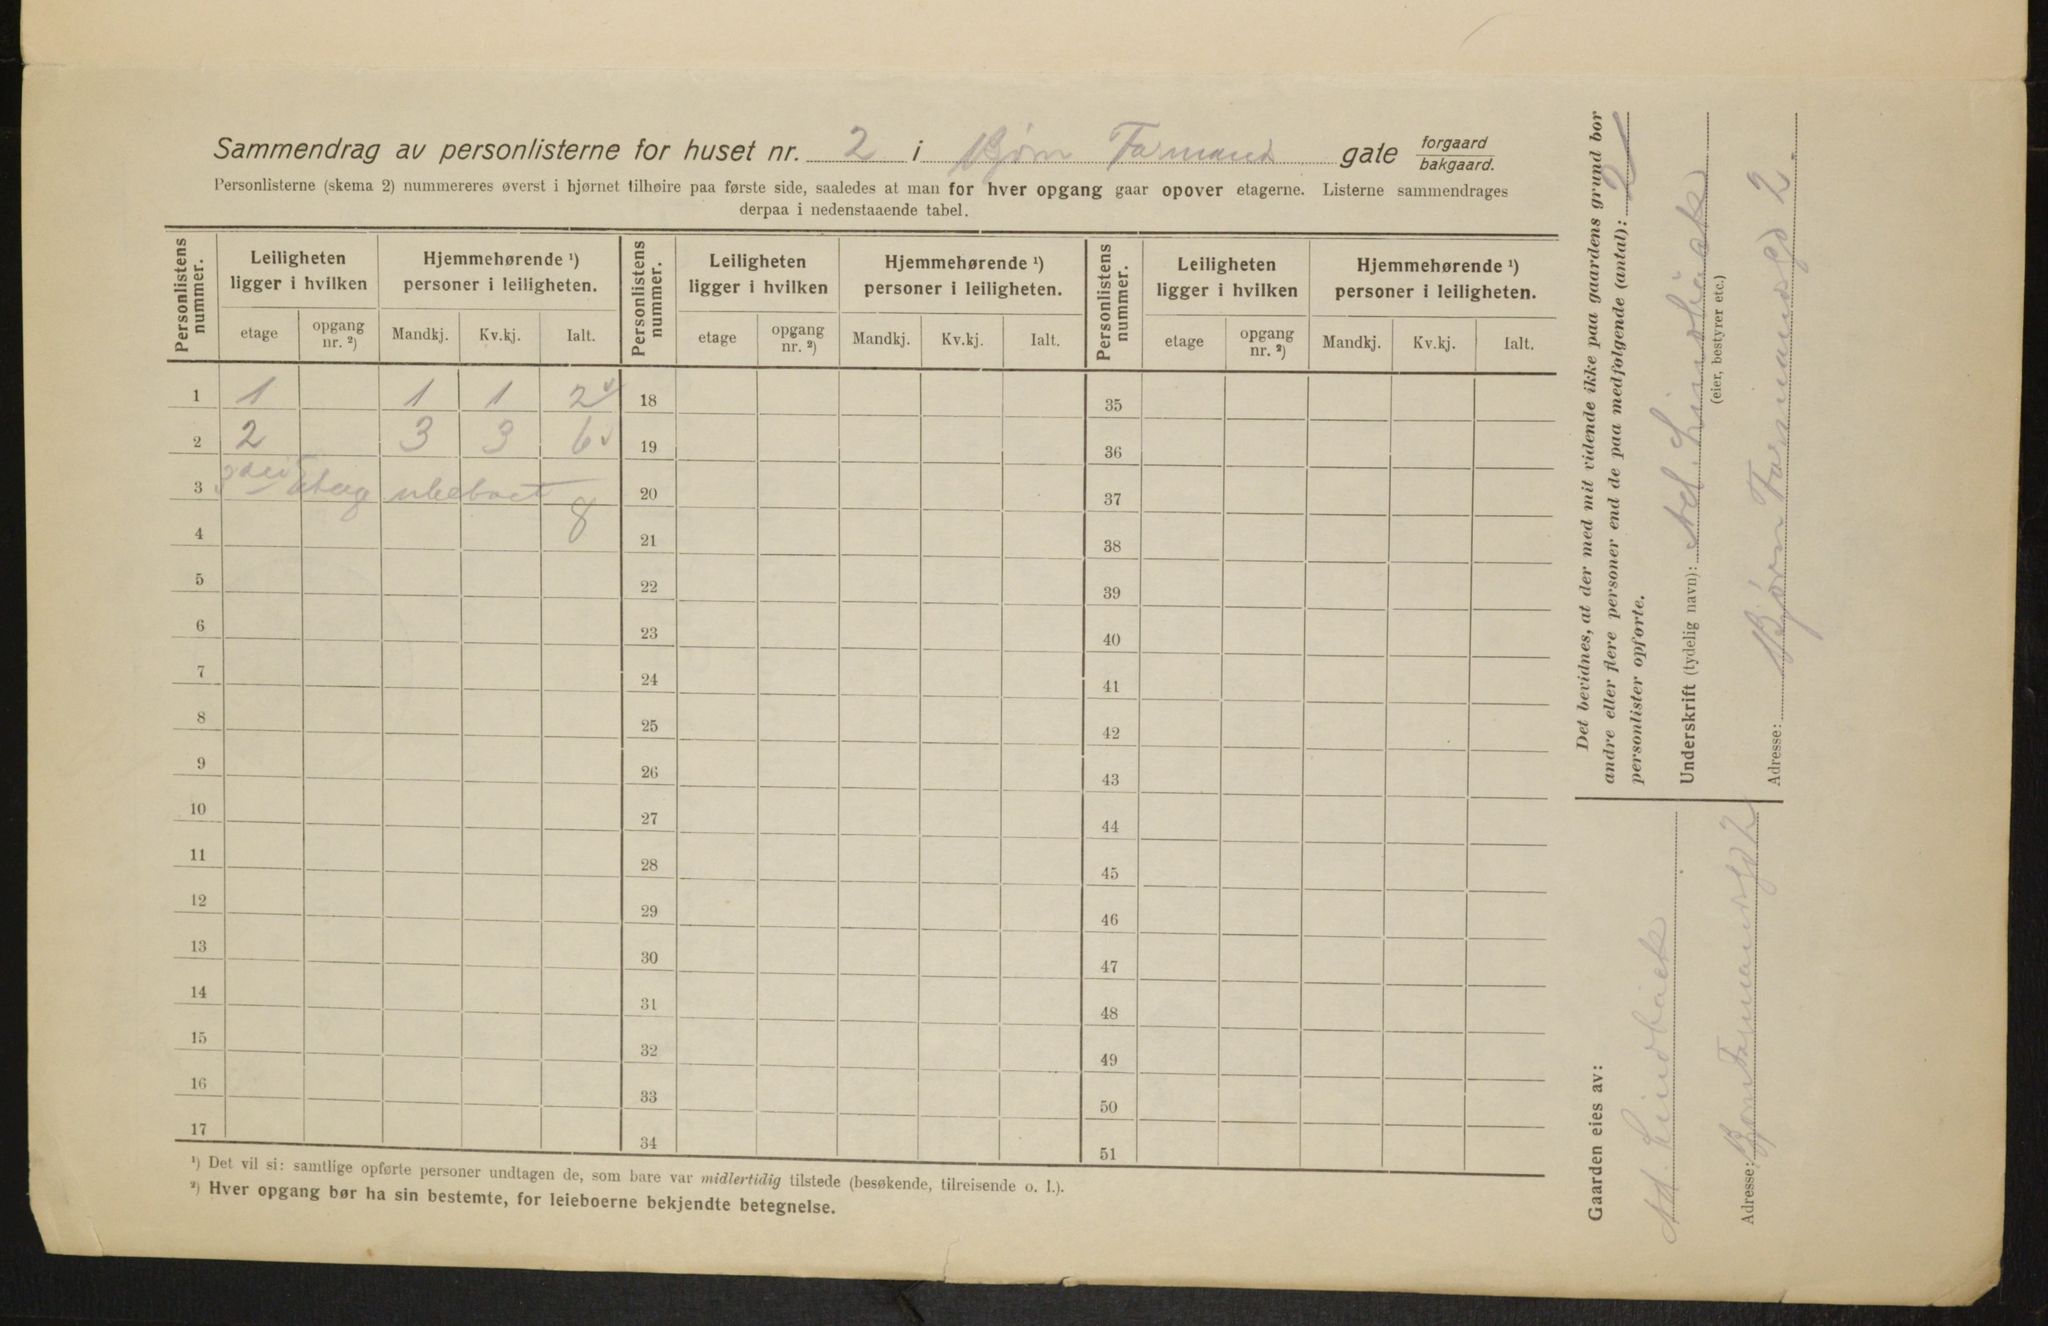 Sammendrag av personlisterne for huset nr. 2 i Bjørn Farmand gate forgaard bakgaard.
Personlisterne (skema 2) nummereres øverst i hjørnet tilhøire paa første side, saaledes at man for hver opgang gaar opover etagerne. Listerne sammendrages
derpaa i nedenstaaende tabel.
Personlistens nummer. Leiligheten ligger i hvilken Hjemmehørende ¹) personer i leiligheten. Personlistens nummer. Leiligheten ligger i hvilken Hjemmehørende ¹) personer i leiligheten. Personlistens nummer. Leiligheten ligger i hvilken Hjemmehørende ¹) personer i leiligheten.
etage opgang nr. ²) Mandkj. Kv.kj. Ialt. etage opgang nr. ²) Mandkj. Kv.kj. Ialt. etage opgang nr. ²) Mandkj. Kv.kj. Ialt.
1 1 1 1 2 18 35
2 2 3 3 6 19 36
3 3die Etage ubeboet 20 37
4 8 21 38
5 22 39
6 23 40
7 24 41
8 25 42
9 26 43
10 27 44
11 28 45
12 29 46
13 30 47
14 31 48
15 32 49
16 33 50
17 34 51
¹) Det vil si: samtlige opførte personer undtagen de, som bare var midlertidig tilstede (besøkende, tilreisende o. l.).
²) Hver opgang bør ha sin bestemte, for leieboerne bekjendte betegnelse.
Det bevidnes, at der med mit vidende ikke paa gaardens grund bor
andre eller flere personer end de paa medfølgende (antal): 2
personlister opførte.
Underskrift (tydelig navn): Ad. Lindbäck
(eier, bestyrer etc.)
Adresse: Bjørn Farmandsgd 2.
Gaarden eies av:
Ad. Lindbäck
Adresse: Bjørn Farmandsgd 2